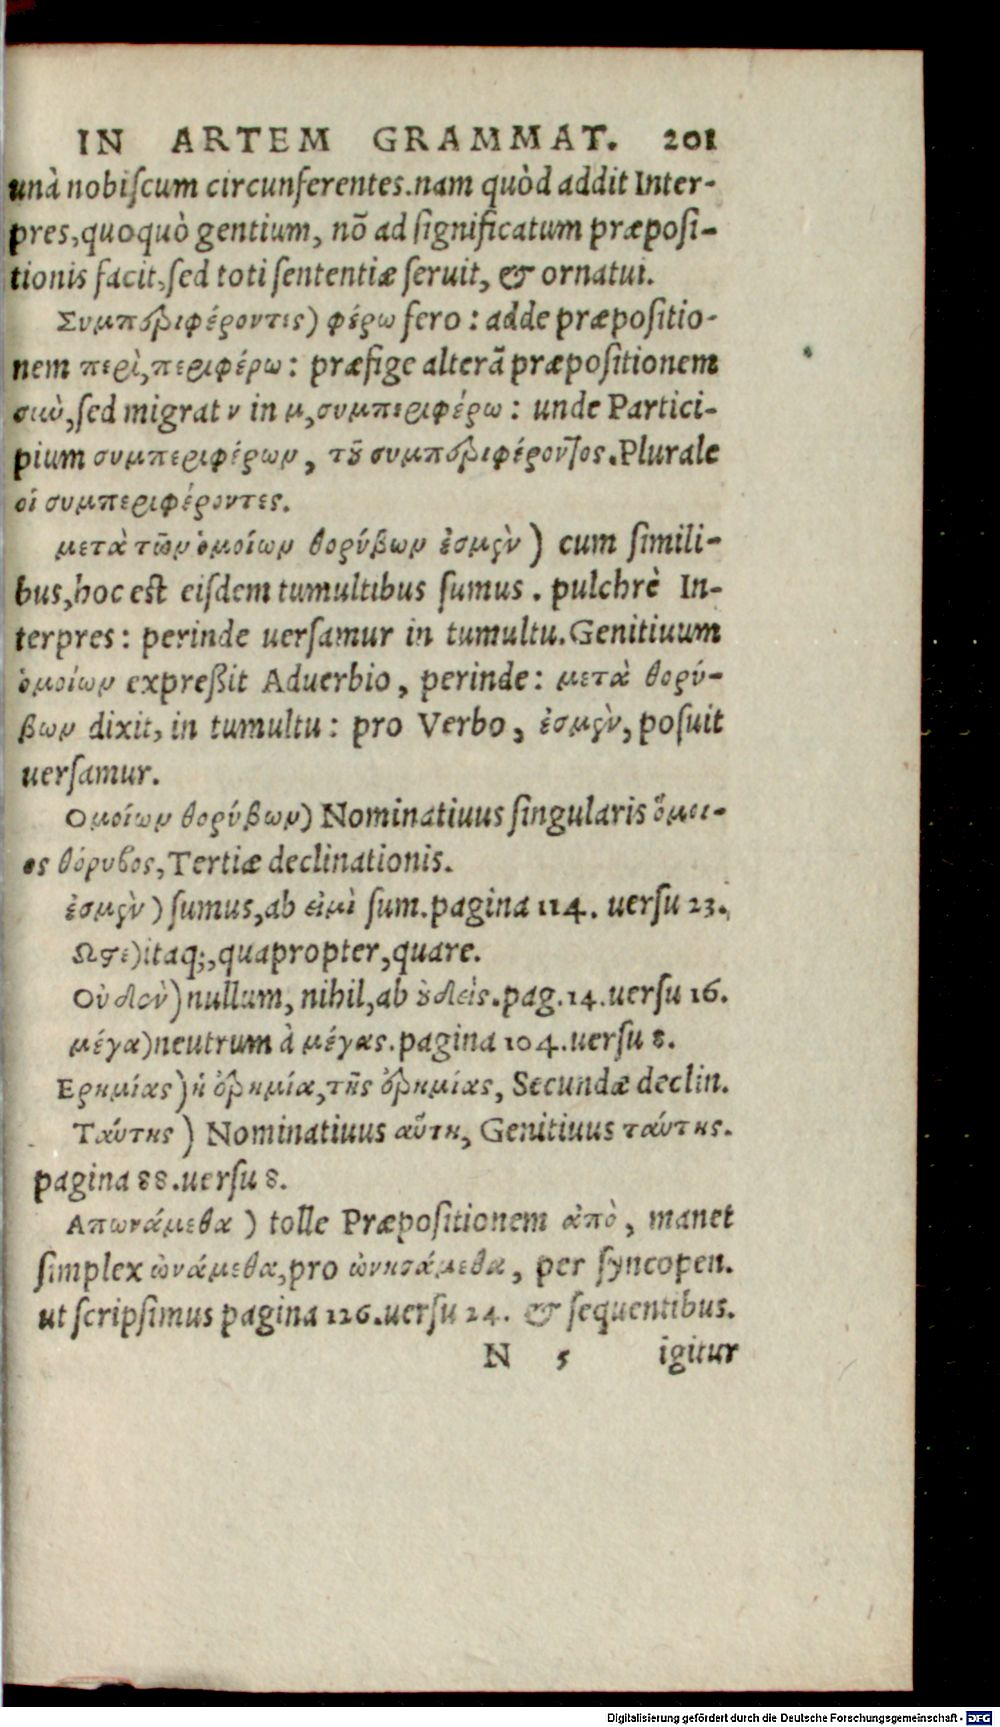 IN ARTEM GRAMMAT. 201
unà nobiſcum circunferentes.nam quòd addit Inter-
pres,quoquò gentium, nõ ad ſignificatum præpoſi-
tionis facit,ſed toti ſententiæ ſeruit, & ornatui.
Συμπεριφέροντες) φέρω fero: adde præpoſitio-
nem περὶ,περιφέρω: præfige alterã præpoſitionem
σιὺ,ſed migrat ν in μ,συμπεριφέρω: unde Partici-
pium συμπεριφέρων, τȣ͂ συμπεριφέροντος.Plurale
οἱ συμπεριφέροντες.
μετὰ τῶν ὁμοίων θορύβων ἐσμὲν) cum ſimili-
bus,hoc eſt eiſdem tumultibus ſumus. pulchrè In-
terpres: perinde uerſamur in tumultu.Genitiuum
ὁμοίων expreßit Aduerbio, perinde: μετὰ θορύ-
βων dixit, in tumultu: pro Verbo, ἐσμὲν, poſuit
uerſamur.
Ομοίων θορύβων) Nominatiuus ſingularis ὅμοι-
ος θόρυϐος,Tertiæ declinationis.
ἐσμὲν) ſumus,ab εἰμὶ ſum.pagina 114. uerſu 23.
Ωϛε)itaq;,quapropter,quare.
Οὐδὲν)nullum, nihil,ab ȣ̓δεὶς.pag.14.uerſu 16.
μέγα)neutrum à μέγας.pagina 104.uerſu 8.
Ερημίας)ἡ ἐρημία,τῆς ἐρημίας, Secundæ declin.
Ταύτης) Nominatiuus αὕτη, Genitiuus ταύτης.
pagina 88.uerſu 8.
Απωνάμεθα) tolle Præpoſitionem ἀπὸ, manet
ſimplex ὠνάμεθα,pro ὠνησάμεθα, per ſyncopen.
ut ſcripſimus pagina 126.uerſu 24. & ſequentibus.
N 5 igitur
Digitalisierung gefördert durch die Deutsche Forschungsgemeinschaft - DFG